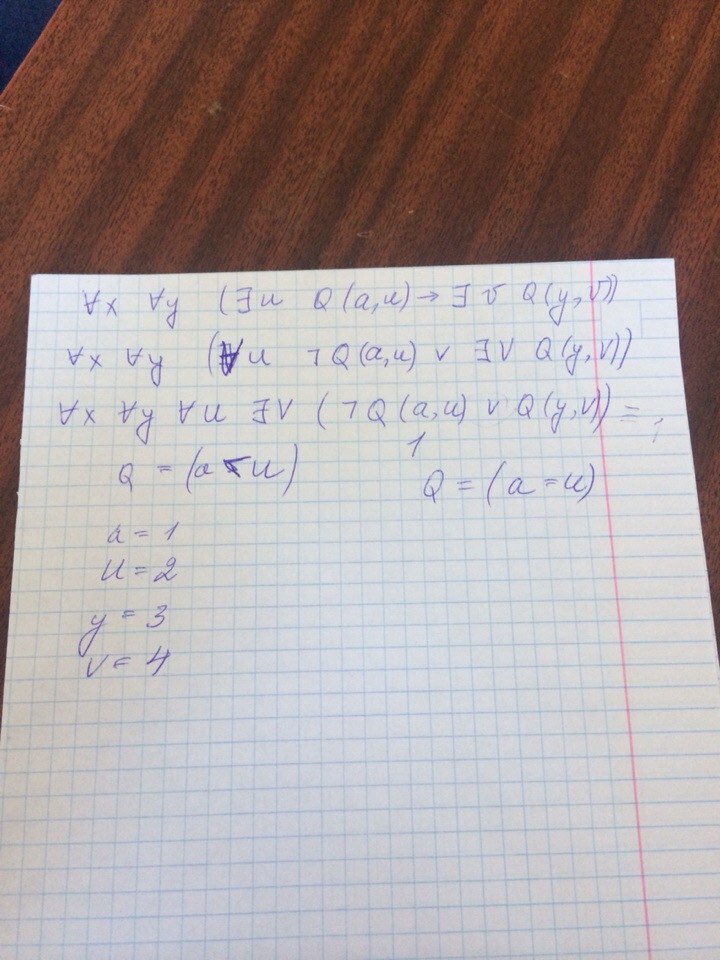 ∀x ∀y (∃u Q(a,u) → ∃v Q(y,v))
∀x ∀y (∀u ¬Q(a,u) ∨ ∃v Q(y,v))
∀x ∀y ∀u ∃v (¬Q(a,u) ∨ Q(y,v)) =
1
Q = (a < u) Q = (a = u)
a = 1
u = 2
y = 3
v = 4